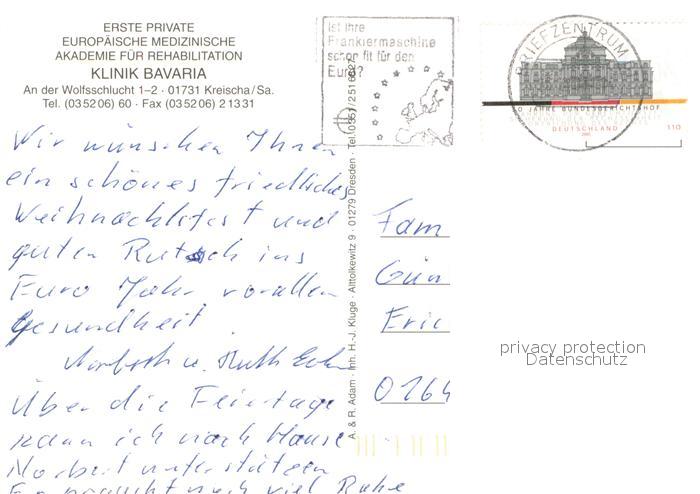 ERSTE PRIVATE
EUROPÄISCHE MEDIZINISCHE
AKADEMIE FÜR REHABILITATION
KLINIK BAVARIA
An der Wolfsschlucht 1–2 · 01731 Kreischa/Sa.
Tel. (035206) 60 · Fax (035206) 21331
Ist Ihre
Frankiermaschine
schon fit für den
Euro?
BRIEFZENTRUM
0 JAHRE BUNDESGERICHTSHOF
DEUTSCHLAND
110
Wir wünschen Ihnen
ein schönes friedliches
Weihnachtsfest und
guten Rutsch ins
Euro Jahr vorallen
Gesundheit.
Norbert u. Ruth
Über die Feiertage
kann ich nach Hause
Norbert unterstützen
Er braucht noch viel Ruhe
A. & R. Adam · Inh. H.-J. Kluge · Alttolkewitz 9 · 01279 Dresden · Tel. 0351/2516827
Fam
Gün
Eric
0164
privacy protection
Datenschutz